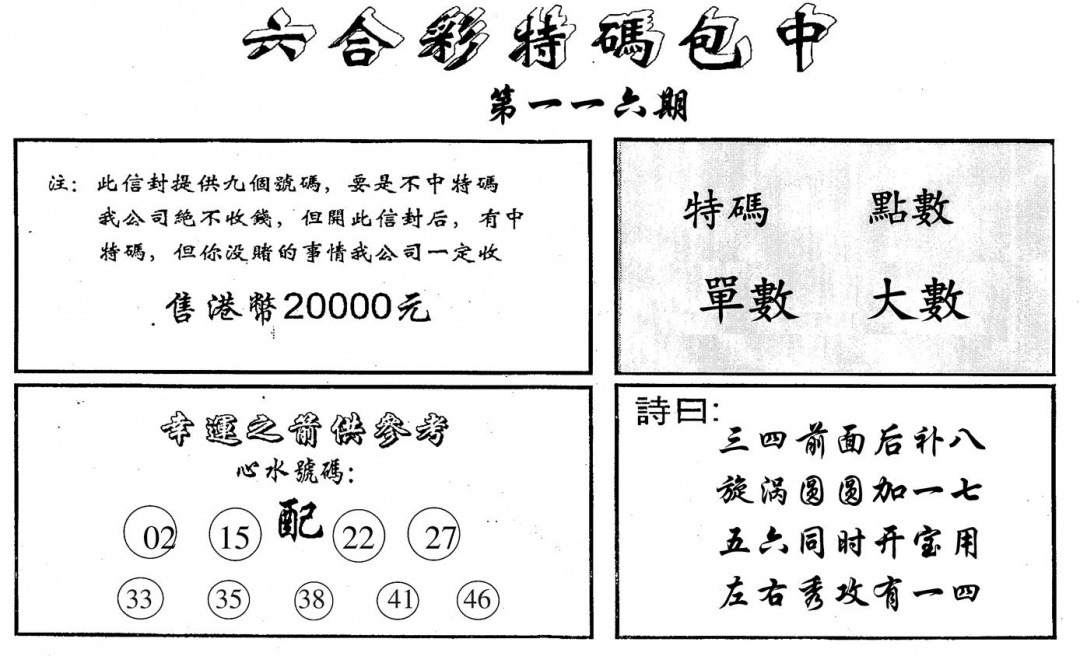 六合彩特碼包中
第一一六期
注: 此信封提供九個號碼, 要是不中特碼
我公司絶不收錢, 但開此信封后, 有中
特碼, 但你没賭的事情我公司一定收
售港幣20000元
特碼 點數
單數 大數
幸運之箭供參考
心水號碼:
02 15 配 22 27
33 35 38 41 46
詩曰:
三四前面后补八
旋涡圆圆加一七
五六同时开宝用
左右秀攻有一四